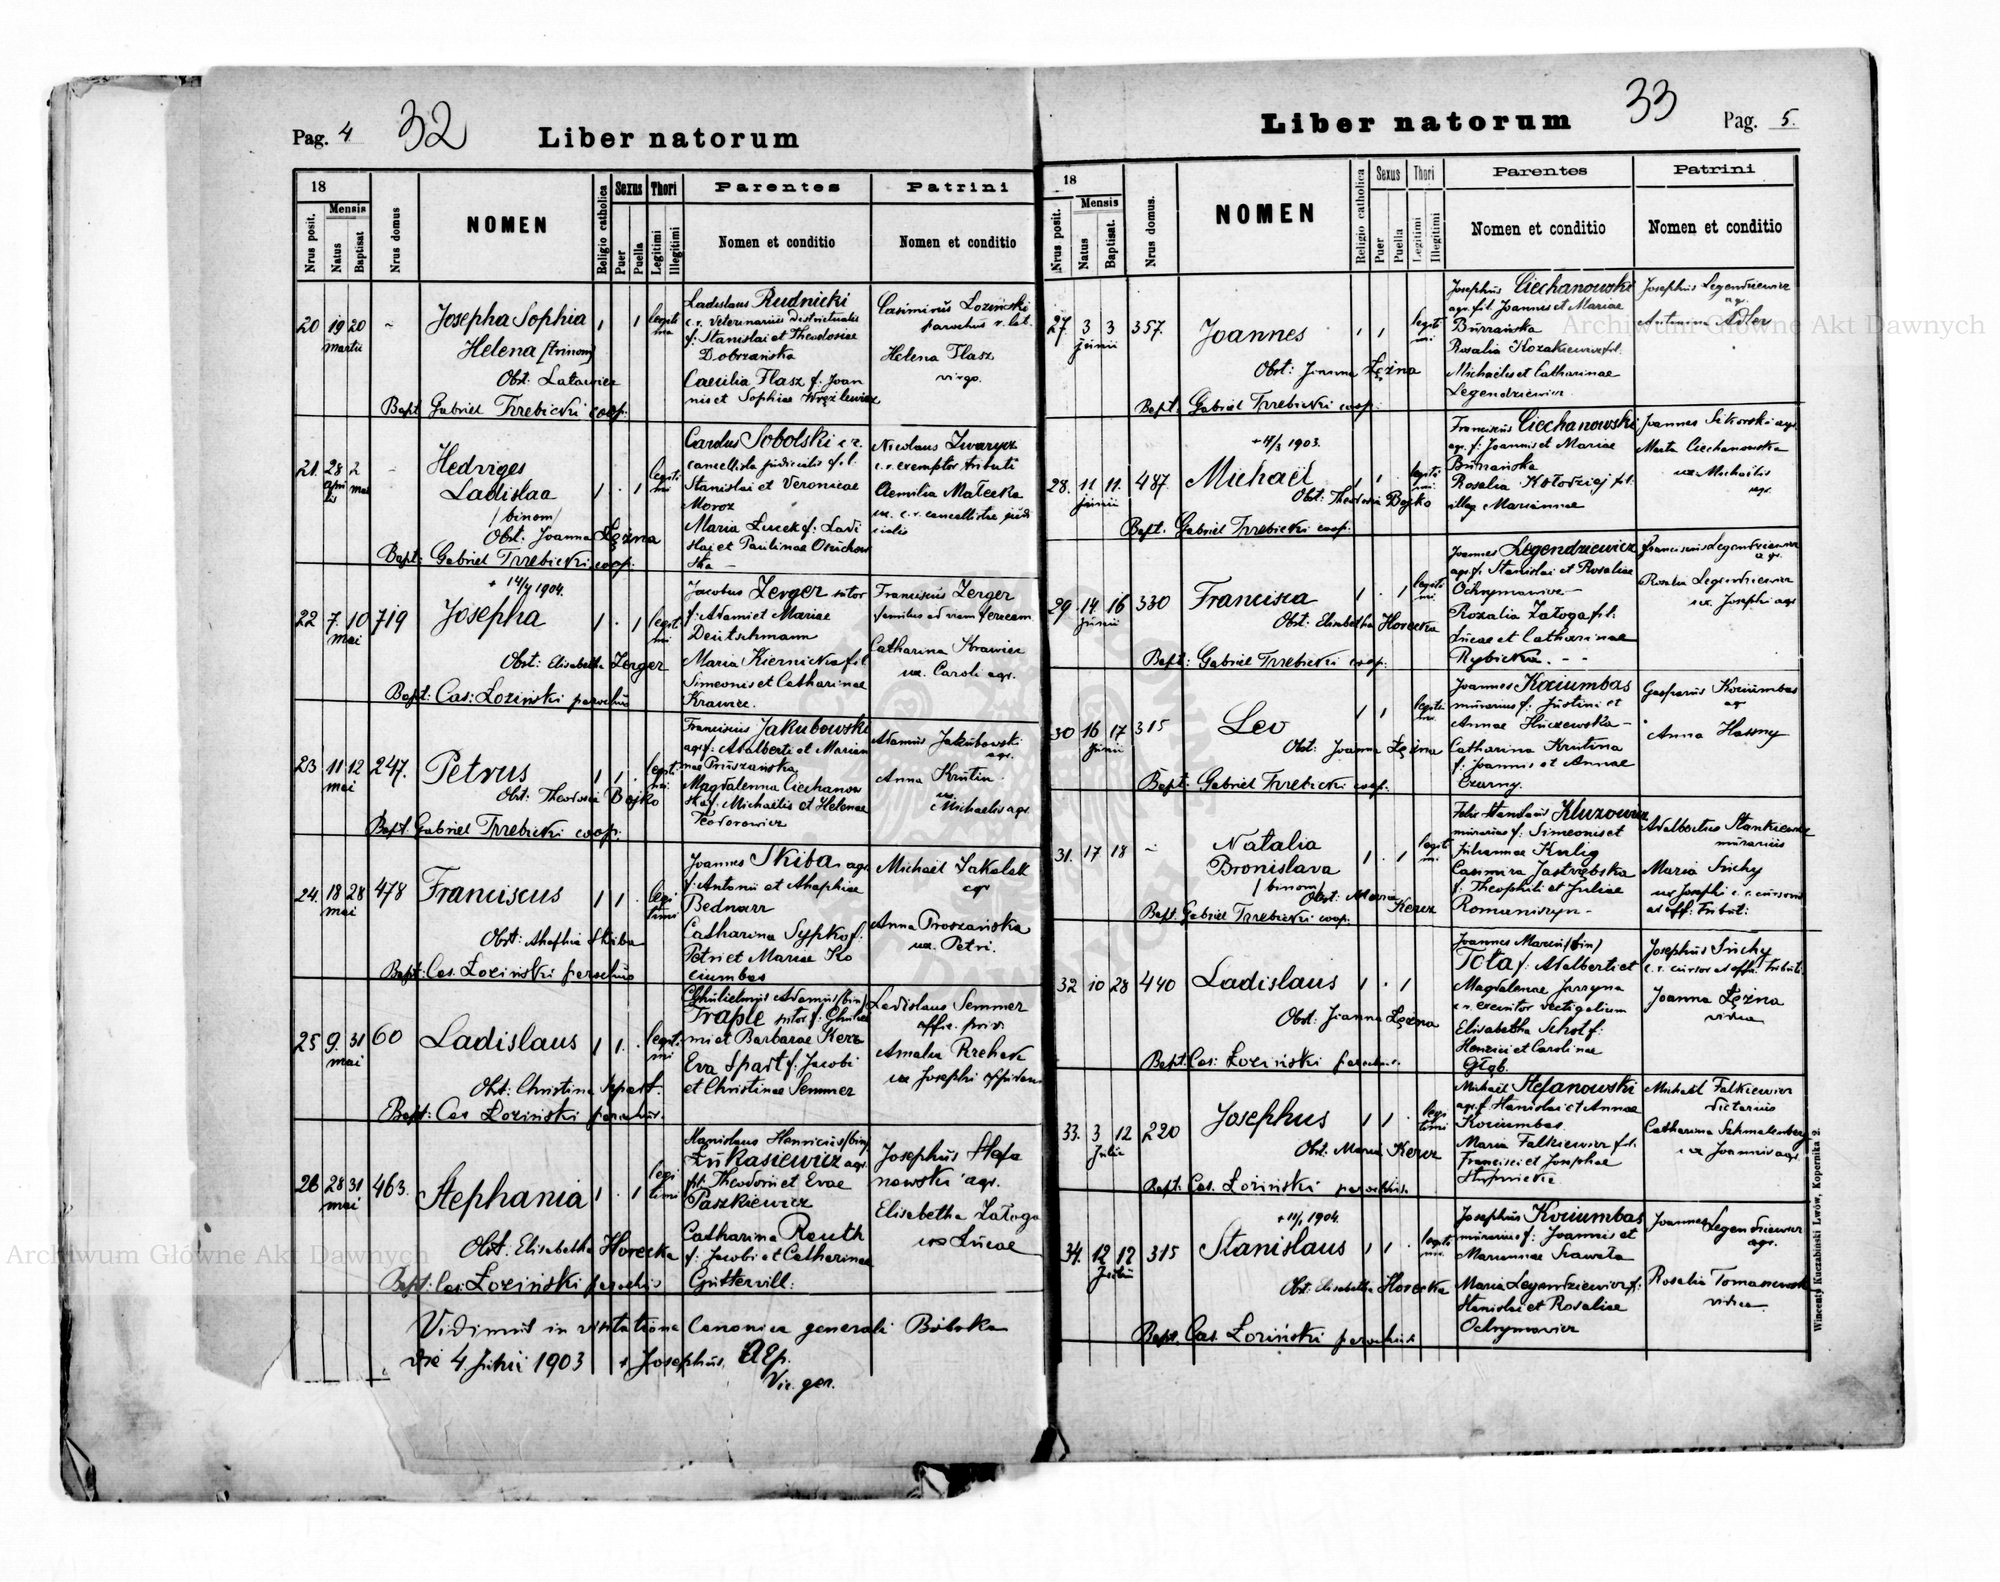 Pag. 4
32
Liber natorum
18
Mensis
Nrus posit.
Natus
Baptisat
Nrus domus
NOMEN
Religio catholica
Sexus
Puer
Puella
Thori
Legitimi
Illegitimi
Parentes
Nomen et conditio
Patrini
Nomen et conditio
20 19 20 Martii
Josepha Sophia
Helena [trinom]
Obst. Latawiec
Bapt. Gabriel Trzebicki coop.
legiti
Ladislaus Rudnicki
c. r. Veterinarius districtualis
f. Stanislai et Theodosiae
Dobrzańska
Caecilia Flasz f. Joan
nis et Sophiae
Casimirus Łoziński
parochus r. lat.
Helena Flasz
virgo.
21. 28 2 mai
Hedviges
Ladislaa
/binom/
Obst. Joanna Łężna
Bapt. Gabriel Trzebicki coop.
legiti
mi
Carolus Sobolski c. r.
cancellista judicialis f.
Stanislai et Veronicae
Moroz
Maria Łucek f. Ladi
slai et Paulinae
Nicolaus Zwarycz
c. r. exemptor tributi
Aemilia Małecka
ux. c. r. cancellistae judi
cialis
22 7. 10 mai 719
+ 14/4 1904.
Josepha
Obst: Elisabetha Zerger
Bapt: Cas: Łoziński parochus
legiti
mi
Jacobus Zerger sutor
f. Adami et Mariae
Deutschmann
Maria Kiernicka fil.
Simeonis et Catharinae
Krawiec.
Franciscus Zerger
famulus ad viam ferream
Catharina Krawiec
ux. Caroli agr.
23 11 12 mai 247.
Petrus
Obst: Theodosia Bojko
Bapt. Gabriel Trzebicki coop.
Franciscus Jakubowski
agr. f. Adalberti et Marian
nae Pruszańska
Magdalenna Ciechanow
ska f. Michaelis et Helenae
Teodorowicz
Adamus Jakubowski
agr.
Anna Krutin
ux.
Michaelis agr.
24. 18 28 mai 478
Franciscus
Obst: Ahafia Skiba
Bapt: Cas. Łoziński parochus
legi
timi
Joannes Skiba agr.
f. Antonii et Ahaphiae
Bednarz
Catharina Sypko f.
Petri et Mariae Ko
ciumbas
Michael Zakalek
agr
Anna Proszańska
ux. Petri.
25 9. 31 mai 60
Ladislaus
Obst: Christina Spart.
Bapt: Cas Łoziński parochus.
legiti
mi
Adamus /bin/
Traple sutor f. Ghuliel
mi et Barbarae Kerz
Eva Spart f. Jacobi
et Christinae Semmer
Ladislaus Semmer
offic. priv.
Amalia Rzehak
ux Josephi
26 28 31 mai 463.
Stephania
Obst. Elisabetha Horecka
Bapt: Cas: Łoziński parochus
legi
timi
Stanislaus Henricus /bin/
Łukasiewicz agr.
fil. Theodori et Evae
Paszkiewicz
Catharina Reuth
f. Jacobi et Catharinae
Josephus Stefa
nowski agr.
Elisabetha Załoga
ux Lucae
Vidimus in visitatione Canonica generali Bóbrka
die 4. Julii 1903 + Josephus, Aep.
Vic. ger.
Liber natorum
33
Pag. 5.
18
Mensis
Nrus posit.
Natus
Baptisat.
Nrus domus.
NOMEN
Religio catholica
Sexus
Puer
Puella
Thori
Legitimi
Illegitimi
Parentes
Nomen et conditio
Patrini
Nomen et conditio
27. 3 3 Junii 357.
Joannes
Obst: Joanna Łężna
Bapt: Gabriel Trzebicki coop.
legiti
mi
Josephus Ciechanowski
agr. fil. Joannis et Mariae
Rosalia Kozakiewicz fil.
Michaelis et Catharinae
Legendziewicz
Josephus Legendziewicz
agr.
Antonina Adler
28. 11 11. Junii 487
+ 4/3 1903.
Michael
Obst: Theodosia Bojko
Bapt. Gabriel Trzebicki coop.
legiti
mi
Franciscus Ciechanowski
agr. f. Joannis et Mariae
Rosalia Kołodziej fil.
illeg Mariannae
Joannes Sikorski agr.
Marta Ciechanowska
ux Michaelis
agr.
29. 14 16 Junii 330
Francisca
Obst: Elisabetha Horecka
Bapt: Gabriel Trzebicki coop.
legiti
mi
Joannes Legendziewicz
agr. f. Stanislai et Rosaliae
Ochrymowicz
Rozalia Załoga fil.
Lucae et Catharinae
Rybicka.
Franciscus Legendziewicz
agr.
Rosalia Legendziewicz
ux. Josephi agr
30 16 17 Junii 315
Leo
Obst: Joanna Łężna
Bapt: Gabriel Trzebicki coop.
legiti
mi.
Joannes Kociumbas
murarius f. Justini et
Annae
Catharina Krutina
f. Joannis et Annae
Czarny.
Gasparus Kociumbas
agr
Anna Hassny
31. 17 18
Natalia
Bronislava
/binom/
Obst. Maria Kercz
Bapt. Gabriel Trzebicki coop.
legiti
mi
Felix Stanislaus Kluzowicz
murarius f. Simeonis et
Julianae Kulig
Casimira Jastrzębska
f. Theophili et Juliae
Romaniszyn
Adalbertus Stankiewicz
murarius
Maria Suchy
ux Josephi c. r. cursoris
ad off: tribut:
32 10 28 440
Ladislaus
Obst: Joanna Łężna
Bapt. Cas: Łoziński parochus.
Joannes Marcin /bin/
Tota f. Adalberti et
Magdalenae Jarzyna
c. r. executor vectigalium
Elisabetha Schol f.
Henrici et Carolinae
Głąb.
Josephus Suchy
c. r. cursor ad offic. tributi.
Joanna Łężna
vidua
33. 3 12 Julii 220
Josephus
Obst: Maria Kercz
Bapt. Cas. Łoziński parochus.
legi
timi
Michael Stefanowski
agr. f. Stanislai et Annae
Kociumbas.
Maria Falkiewicz fil.
Francisci et Josephae
Michael Falkiewicz
Catharina Schmalenberg
ux Joannis agr.
34. 12 12 Julii 315
+ 11/1 1904.
Stanislaus
Obst. Elisabetha Horecka
Bapt. Cas. Łoziński parochus
legiti
mi.
Josephus Kociumbas
murarius f. Joannis et
Mariannae
Maria Legendziewicz f.
Stanislai et Rosaliae
Ochrymowicz
Joannes Legendziewicz
agr.
Rosalia
vidua
Wincenty Kuczabiński Lwów, Kopernika 2.
Archiwum Główne Akt Dawnych
Archiwum Główne Akt Dawnych